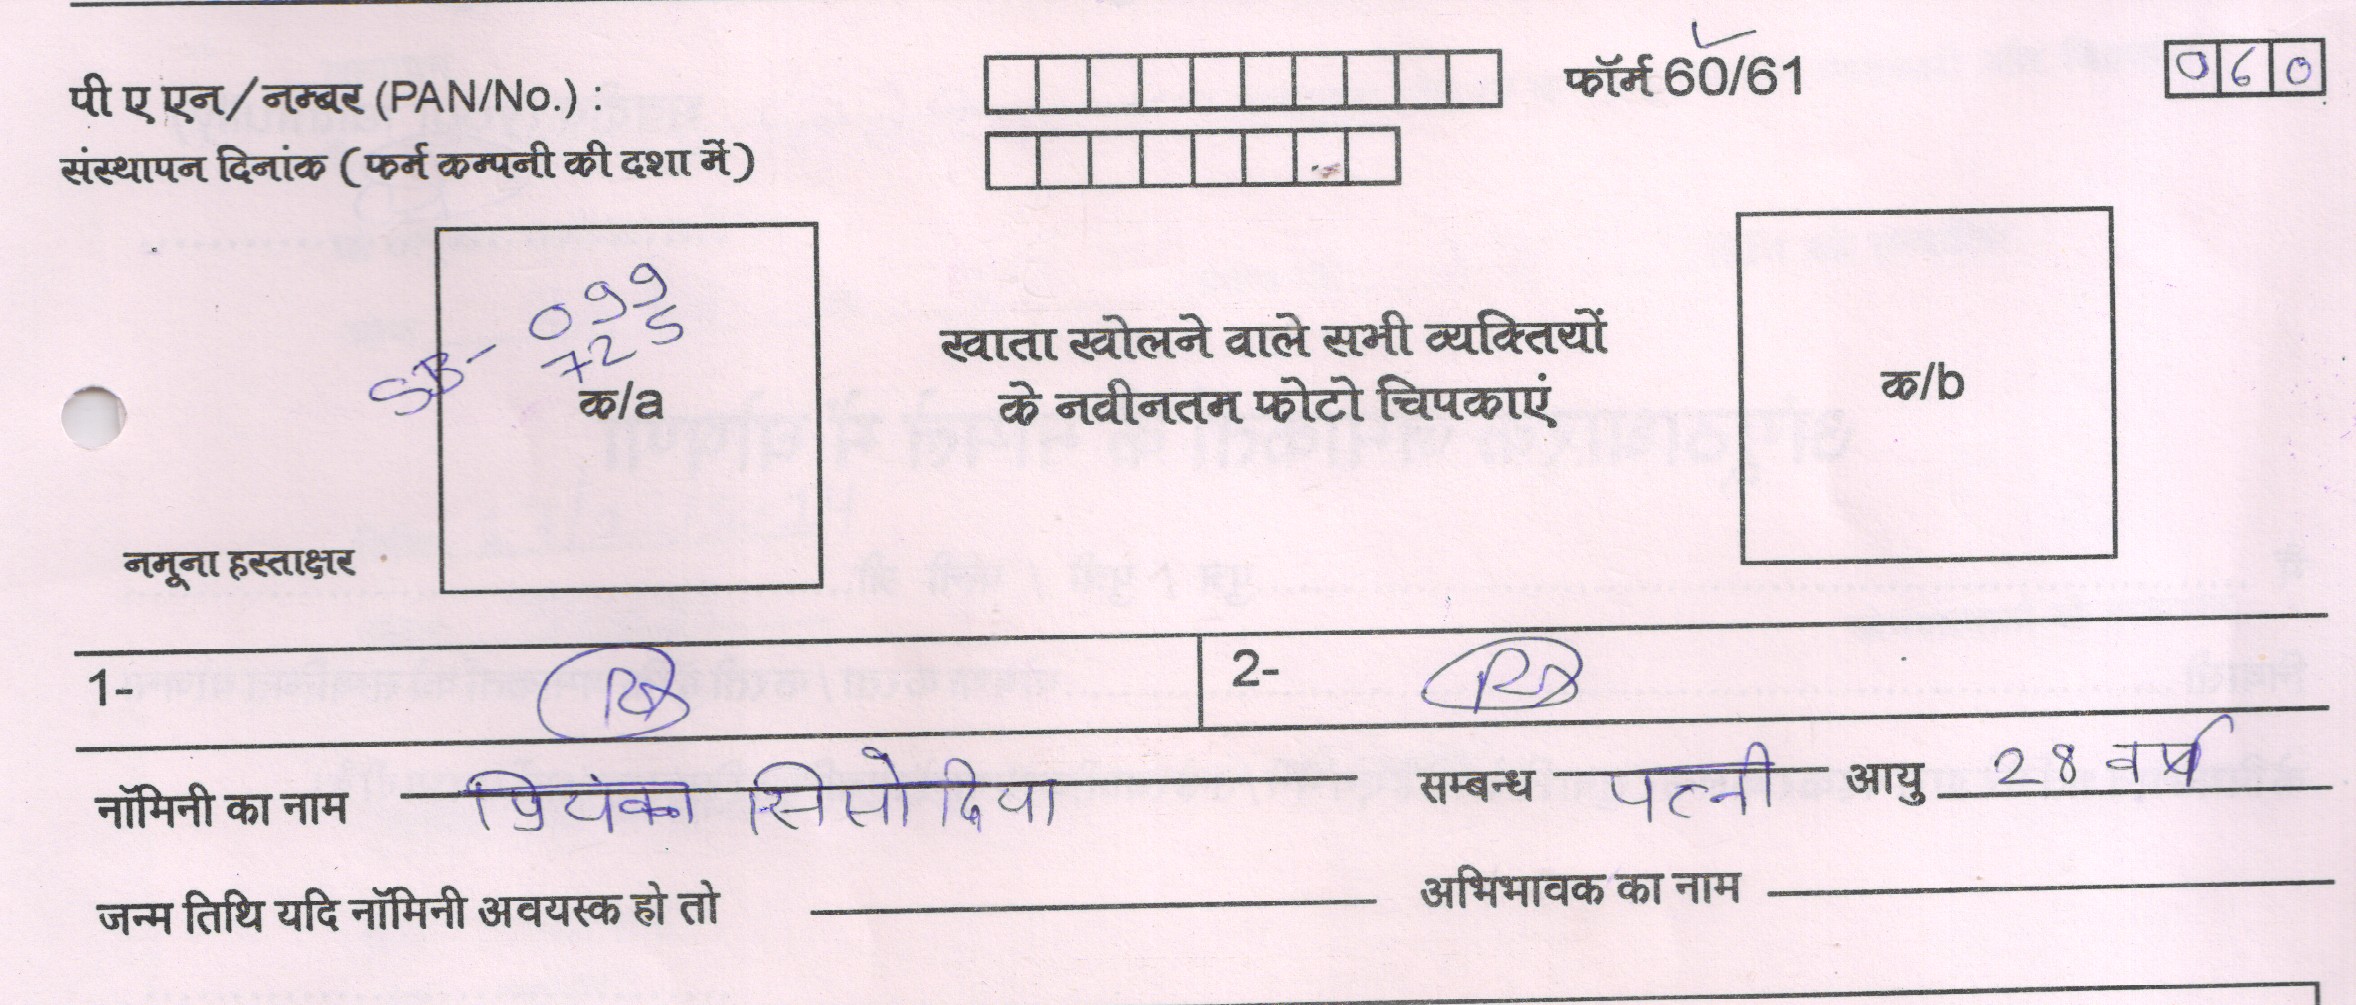 पी ए एन/नम्बर (PAN/No.) : फॉर्म 60/61 060
संस्थापन दिनांक (फर्म कम्पनी की दशा में)
SB- 099
725
क/a
खाता खोलने वाले सभी व्यक्तियों
के नवीनतम फोटो चिपकाएं
क/b
नमूना हस्ताक्षर
1- 2-
नॉमिनी का नाम प्रियंका सिसोदिया सम्बन्ध पत्नी आयु 28 वर्ष
जन्म तिथि यदि नॉमिनी अवयस्क हो तो अभिभावक का नाम